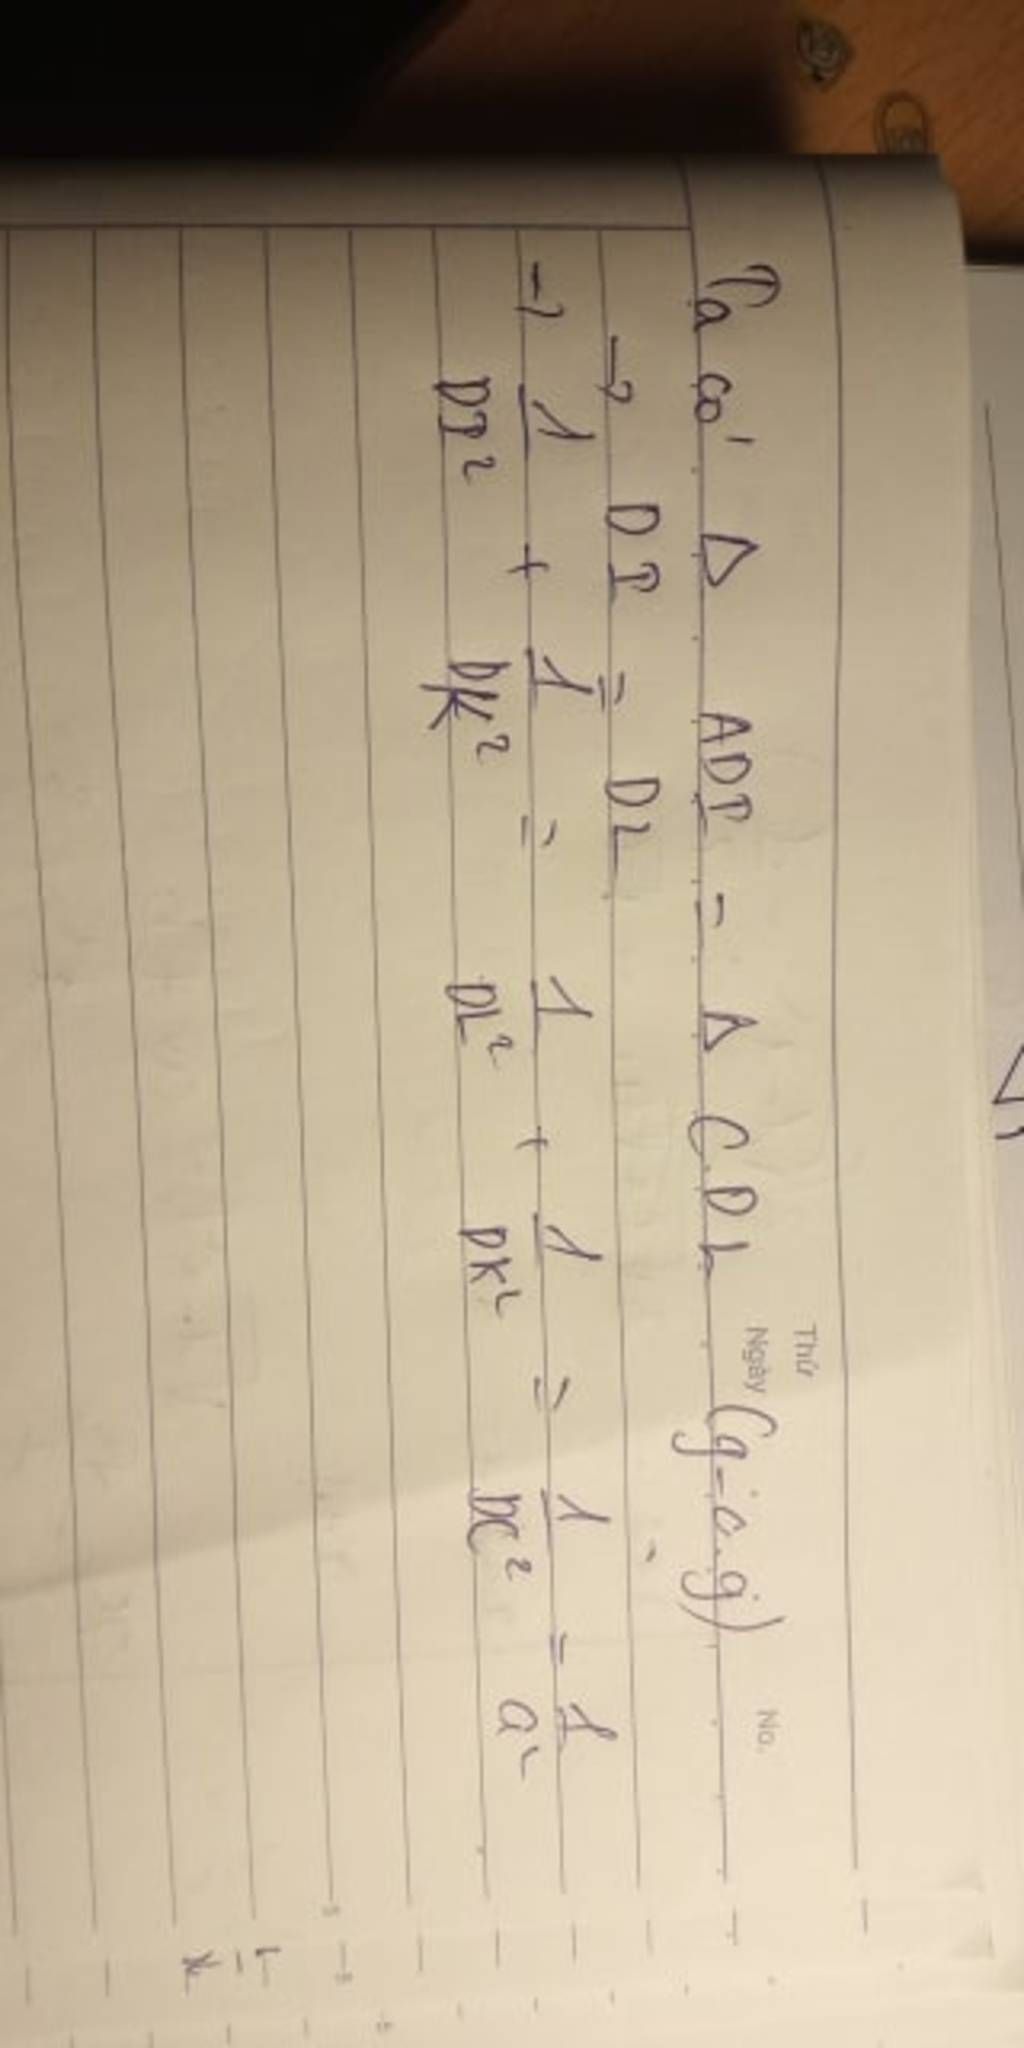 Thứ
Ngày
No.
Ta có Δ ADI = Δ CDL (g-c.g)
→ DI = DL
→ 1/DI² + 1/DK² = 1/DL² + 1/DK² = 1/DC² = 1/a²